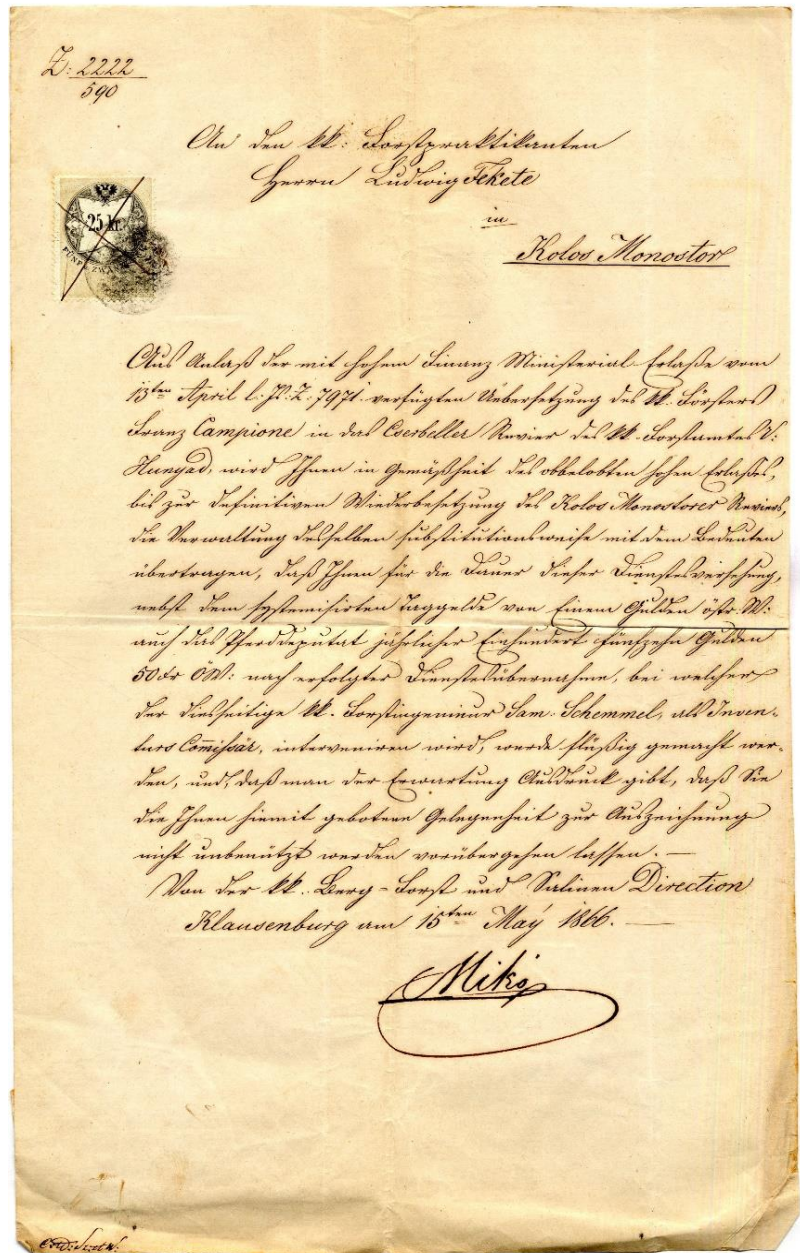 Z: 2222
590
An den kk: Forstpraktikanten
Herrn Ludwig Fekete
in
Kolos Monostor
25 kr.
FÜNF
Aus Anlaß der mit hohem Finanz Ministerial-Erlaße vom
13ten April l: Js: Z. 7971 verfügten Uebersetzung des kk. Försters
Franz Campione in das Cserbeller Revier des kk. Forstamtes V:
Hunyad, wird Ihnen in Gemäßheit des obbelobten hohen Erlaßes,
bis zur definitiven Wiederbesetzung des Kolos Monostorer Reviers,
die Verwaltung desselben substitutionsweise mit dem Bedeuten
übertragen, daß Ihnen für die Dauer dieser Dienstesversehung,
nebst dem systemisirten Taggelde von Einem Gulden östr. W:
auch das Pferddeputat jährlicher Einhundert fünfzehn Gulden
50 xr ÖW: nach erfolgter Dienstesübernahme, bei welcher
der diesseitige kk. Forstingenieur Sam: Schemmel, als Inven-
turs Com̅ißär, interveniren wird, werde flüßig gemacht wer-
den, und, daß man der Erwartung Ausdruck gibt, daß Sie
die Ihnen hiemit gebotene Gelegenheit zur Auszeichnung
nicht unbenützt werden vorübergehen lassen. —
Von der kk. Berg-Forst und Salinen Direction
Klausenburg am 15ten Maÿ 1866. —
Mikó